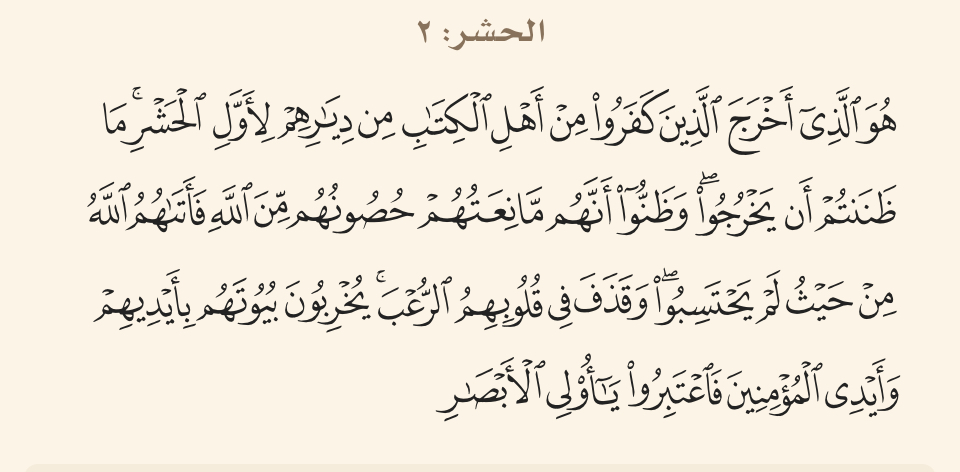 الحشر: ٢
هُوَ ٱلَّذِىٓ أَخْرَجَ ٱلَّذِينَ كَفَرُوا۟ مِنْ أَهْلِ ٱلْكِتَـٰبِ مِن دِيَـٰرِهِمْ لِأَوَّلِ ٱلْحَشْرِ ۚ مَا
ظَنَنتُمْ أَن يَخْرُجُوا۟ ۖ وَظَنُّوٓا۟ أَنَّهُم مَّانِعَتُهُمْ حُصُونُهُم مِّنَ ٱللَّهِ فَأَتَىٰهُمُ ٱللَّهُ
مِنْ حَيْثُ لَمْ يَحْتَسِبُوا۟ ۖ وَقَذَفَ فِى قُلُوبِهِمُ ٱلرُّعْبَ ۚ يُخْرِبُونَ بُيُوتَهُم بِأَيْدِيهِمْ
وَأَيْدِى ٱلْمُؤْمِنِينَ فَٱعْتَبِرُوا۟ يَـٰٓأُو۟لِى ٱلْأَبْصَـٰرِ